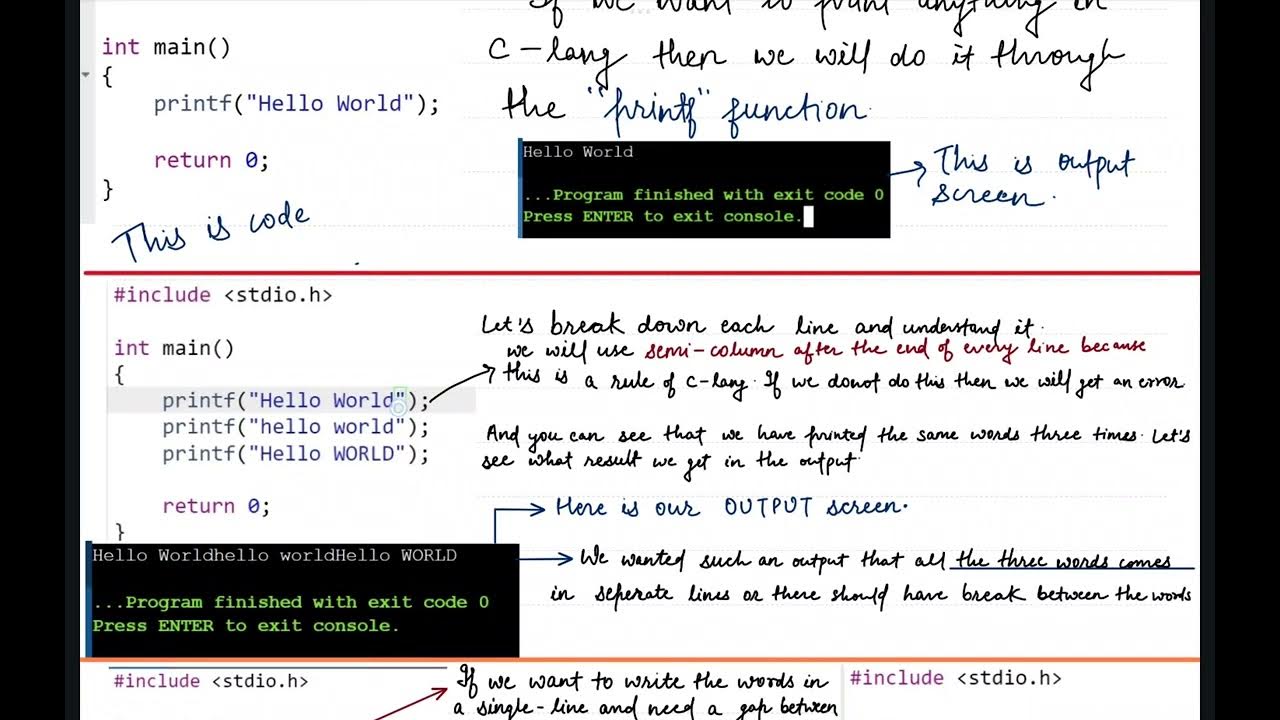 If we want to print anything in
C-lang then we will do it through
the "printf" function.
int main()
{
printf("Hello World");
return 0;
}
This is code
Hello World
...Program finished with exit code 0
Press ENTER to exit console.
This is output
screen.
#include <stdio.h>
int main()
{
printf("Hello World");
printf("hello world");
printf("Hello WORLD");
return 0;
}
Let's break down each line and understand it.
we will use semi-column after the end of every line because
this is a rule of c-lang. If we donot do this then we will get an error
And you can see that we have printed the same words three times. Let's
see what result we get in the output.
Here is our OUTPUT screen.
Hello Worldhello worldHello WORLD
...Program finished with exit code 0
Press ENTER to exit console.
We wanted such an output that all the three words comes
in seperate lines or there should have break between the words
#include <stdio.h>
If we want to write the words in
a single-line and need a gap between
#include <stdio.h>